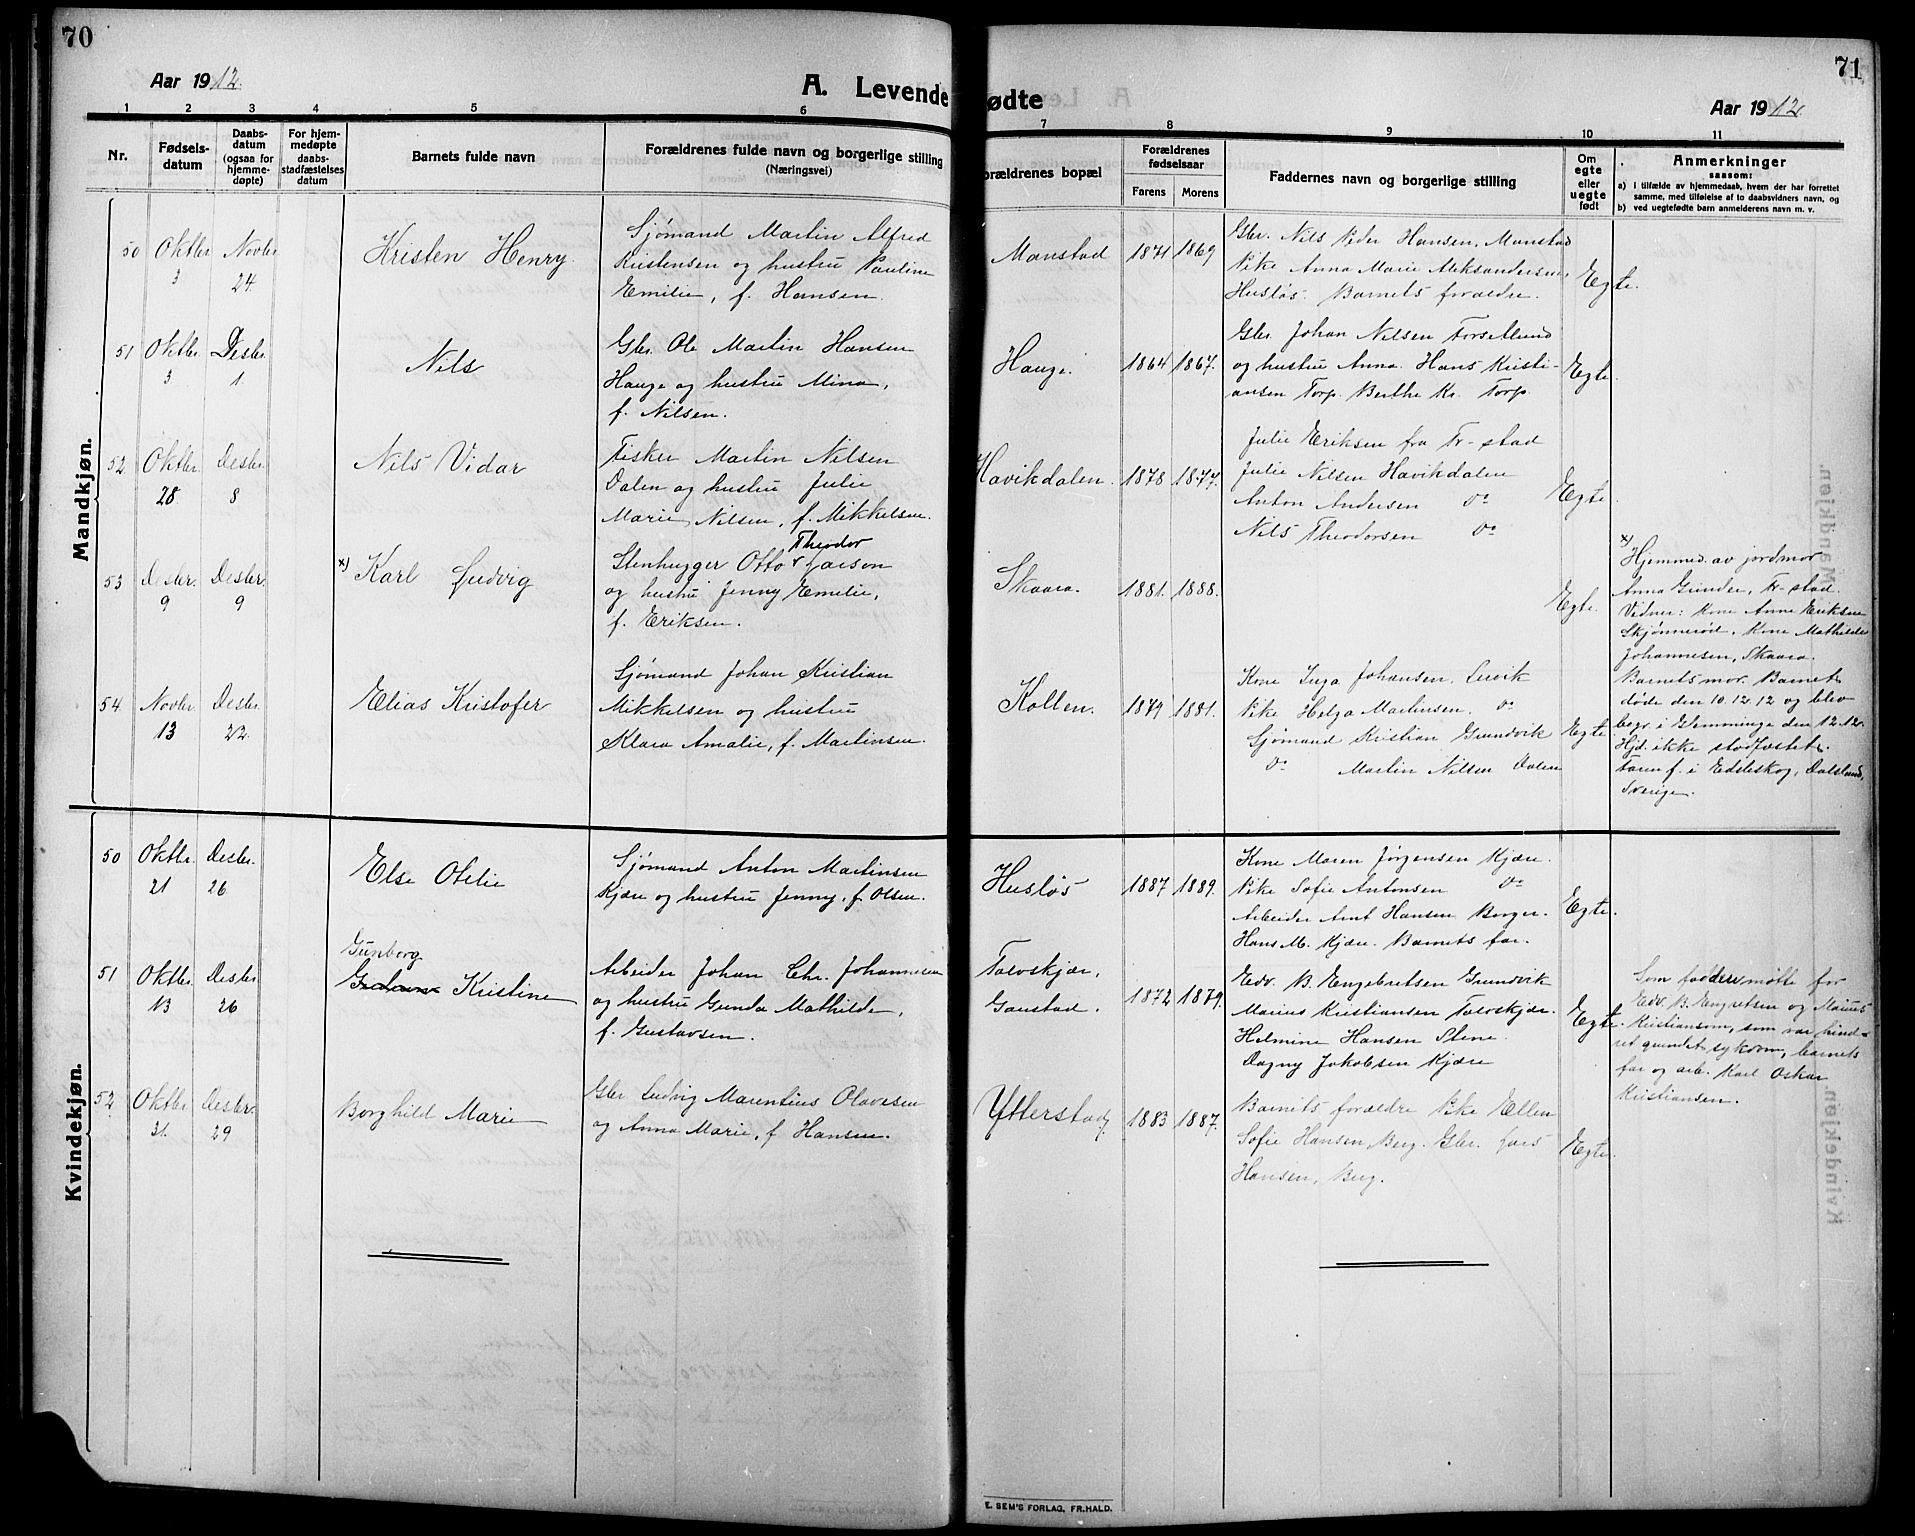 70
Aar 1912.
A. Levende
1 2 3 4 5 6
Nr.
Fødsels-
datum
Daabs-
datum
(ogsaa for
hjemme-
døpte)
For hjem-
medøpte
daabs-
stadfæstelses
datum
Barnets fulde navn
Forældrenes fulde navn og borgerlige stilling
(Næringsvei)
Mandkjøn.
50 Oktbr. 3 Novbr. 24.
Kristen Henry
Sjømand Martin Alfred
Kristensen og hustru Pauline
Emilie, f. Hansen.
51 Oktbr. 3 Desbr. 1
Nils
Gbr. Ole Martin Hansen
Hauge og hustru Mina,
f. Nilsen.
52 Oktbr. 28 Desbr. 8
Nils Vidar
Fisker Martin Nilsen
Dalen og hustru Julie
Marie Nilsen, f. Mikkelsen.
53 Desbr. 9 Desbr. 9
x) Karl Ludvig
Theodor
Stenhugger Otto v Larson
og hustru Jenny Emelie,
f. Eriksen.
54. Novbr. 13 Desbr. 22.
Elias Kristofer
Sjømand Johan Kristian
Mikkelsen og hustru
Klara Amalie, f. Martinsen.
Kvindekjøn.
50 Oktbr. 21 Desbr. 26
Else Otelie
Sjømand Anton Martinsen
Kjære og hustru Jenny, f. Olsen.
51 Oktbr. 13 Desbr. 26
Gunborg
Kristine
Arbeider Johan Chr. Johannesen
og hustru Gunda Mathilde,
f. Gustavsen.
52 Oktbr. 31. Desbr. 29
Borghild Marie
Gbr. Ludvig Marentius Olavesen
og Anna Marie, f. Hansen.
71
ødte
Aar 1912.
7 8 9 10 11
orældrenes bopæl
Forældrenes
fødselsaar
Farens Morens
Faddernes navn og borgerlige stilling
Om
egte
eller
uegte
født
Anmerkninger
saasom:
a) i tilfælde av hjemmedaab, hvem der har forrettet
samme, med tilføielse af to daabsvidners navn, og
b) ved uegtefødte barn anmelderens navn m. v.
Manstad 1871 1869
Gbr. Nils Peder Hansen, Manstad
Pike Anna Marie Aleksandersen,
Husløs. Barnets forældre.
Egte.
Hauge. 1864 1867.
Gbr. Johan Nilsen Torsetlund
og hustru Anna. Hans Kristi-
ansen Torp. Berthe Kr. Torp.
Egte.
Havikdalen. 1878 1877.
Julie Eriksen fra Fr-stad
Julie Nilsen Havikdalen
Anton Andersen Do
Nils Theodorsen Do
Egte.
Skaara. 1881. 1888.
Egte.
x)
Hjemmed. av jordmor
Anna Gunder, Fr-stad.
Vidner: Kone Anne Eriksen
Skjønnerød, Kone Mathilde
Johannesen, Skaara.
Barnets mor. Barnet
døde den 10.12.12 og blev
begr. i Glemminge den 12.12.
Hjd. ikke stadfæstet.
Faren f. i Edsleskog, Dalsland,
Sverige.
Kollen. 1879 1881.
Kone Inga Johansen, Lervik
Pike Helga Martinsen. Do
Sjømand Kristian Grundvik
Do Martin Nilsen Dalen
Egte.
Husløs 1887 1889.
Kone Maren Jørgensen Kjære.
Pike Sofie Antonsen Do
Arbeider Arnt Hansen Borger.
Hans M. Kjære. Barnets far.
Egte.
Tolvskjær,
Gaustad. 1872 1879.
Edv. B. Engebretsen Grundvik
Marius Kristiansen Tolvskjær.
Helmine Hansen Stene.
Dagny Jakobsen Kjære
Egte.
Som faddere møtte for
Edv. B. Engretsen og Marius
Kristiansom, som var hind-
ret grundet sykdom, barnets
far og arb. Karl Oskar
Kristiansen.
Ytterstad, 1883 1887.
Barnets forældre Pike Ellen
Sofie Hansen, Berg. Gbr. Lars
Hansen, Berg.
Egte.
E. SEM'S FORLAG, FR.HALD.